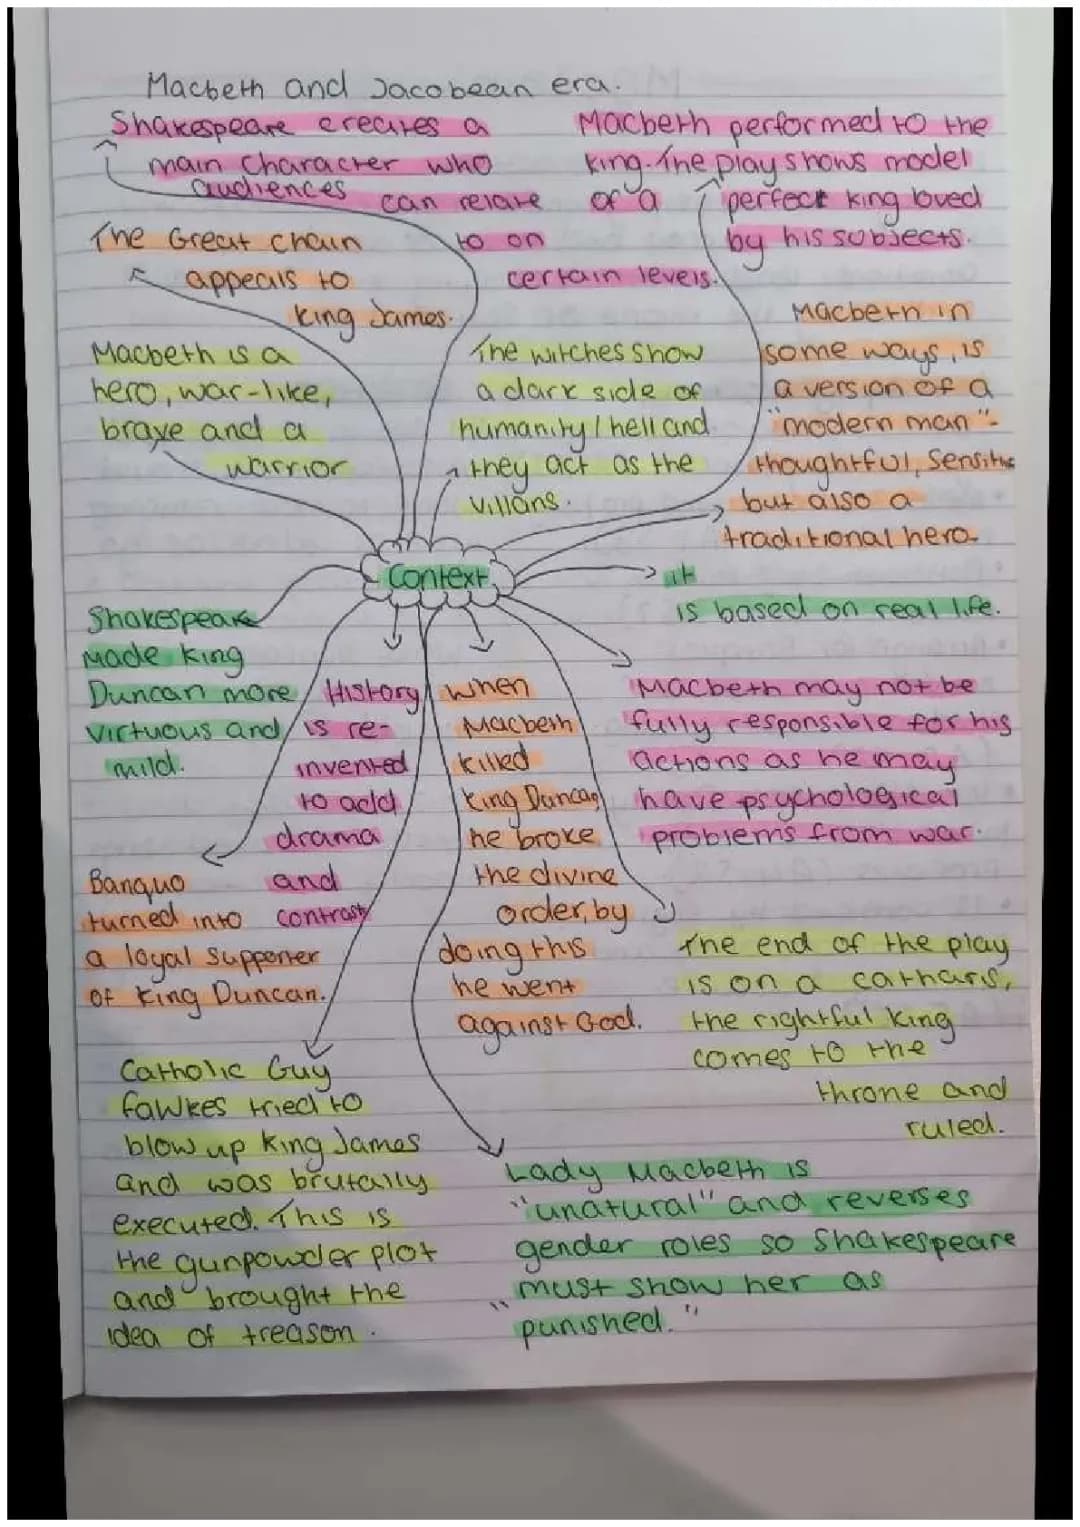 Macbeth and Jacobean era.
Shakespeare creates a
main character who
audiences
can relate
to on
certain levels.
Macbeth performed to the
king. The play shows model
of a perfect king loved
by his subjects.
The Great chain
appeals to
king James.
Macbeth is a
hero, war-like,
brave and a
warrior
The witches show
a dark side of
humanity/hell and
they act as the
villans.
Macbeth in
some ways, is
a version of a
"modern man"-
thoughtful, sensitive
but also a
traditional hero.
Context
it
is based on real life.
Shakespeare
made king
Duncan more
virtuous and
mild.
History
is re-
invented
to add
drama
and
contrast
when
Macbeth
killed
King Duncan
he broke
the divine
order, by
doing this
he went
against God.
Macbeth may not be
fully responsible for his
actions as he may
have psychological
problems from war.
Banquo
turned into
a loyal supporter
of king Duncan.
The end of the play
is on a catharis,
the rightful king
comes to the
throne and
ruled.
Catholic Guy
fawkes tried to
blow up king James
and was brutally
executed. This is
the gunpowder plot
and brought the
idea of treason.
Lady Macbeth is
"unatural" and reverses
gender roles so Shakespeare
must show her as
"punished."